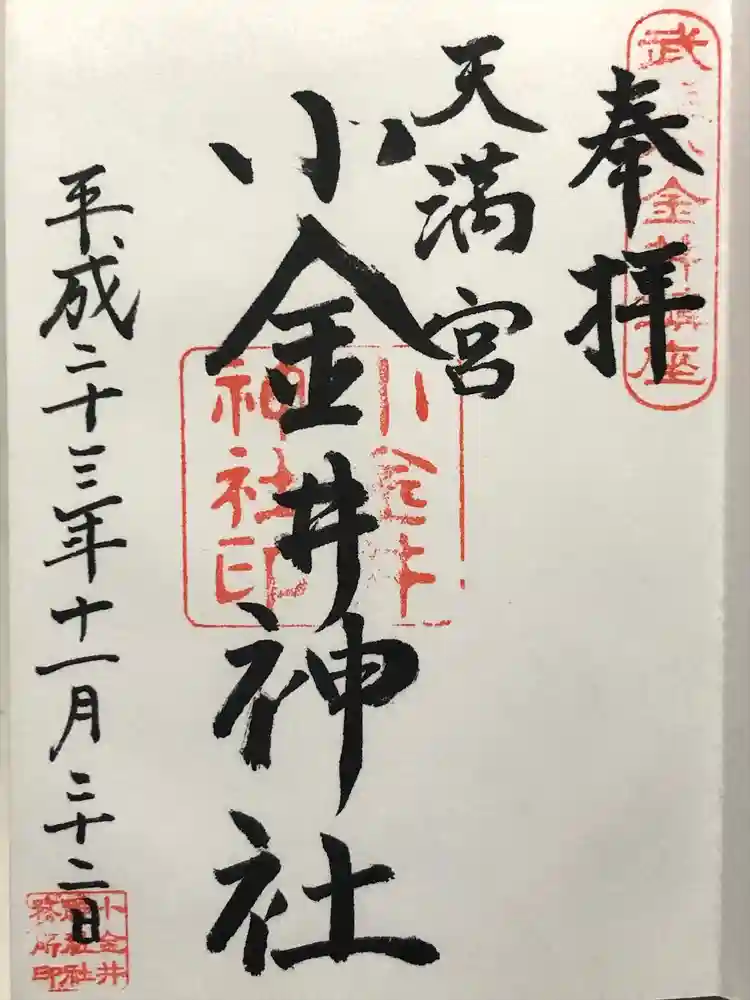 奉拝
武蔵小金井鎮座
天満宮
小金井神社
小金井
神社印
平成二十三年十一月二十二日
小金井
神社社
務所印